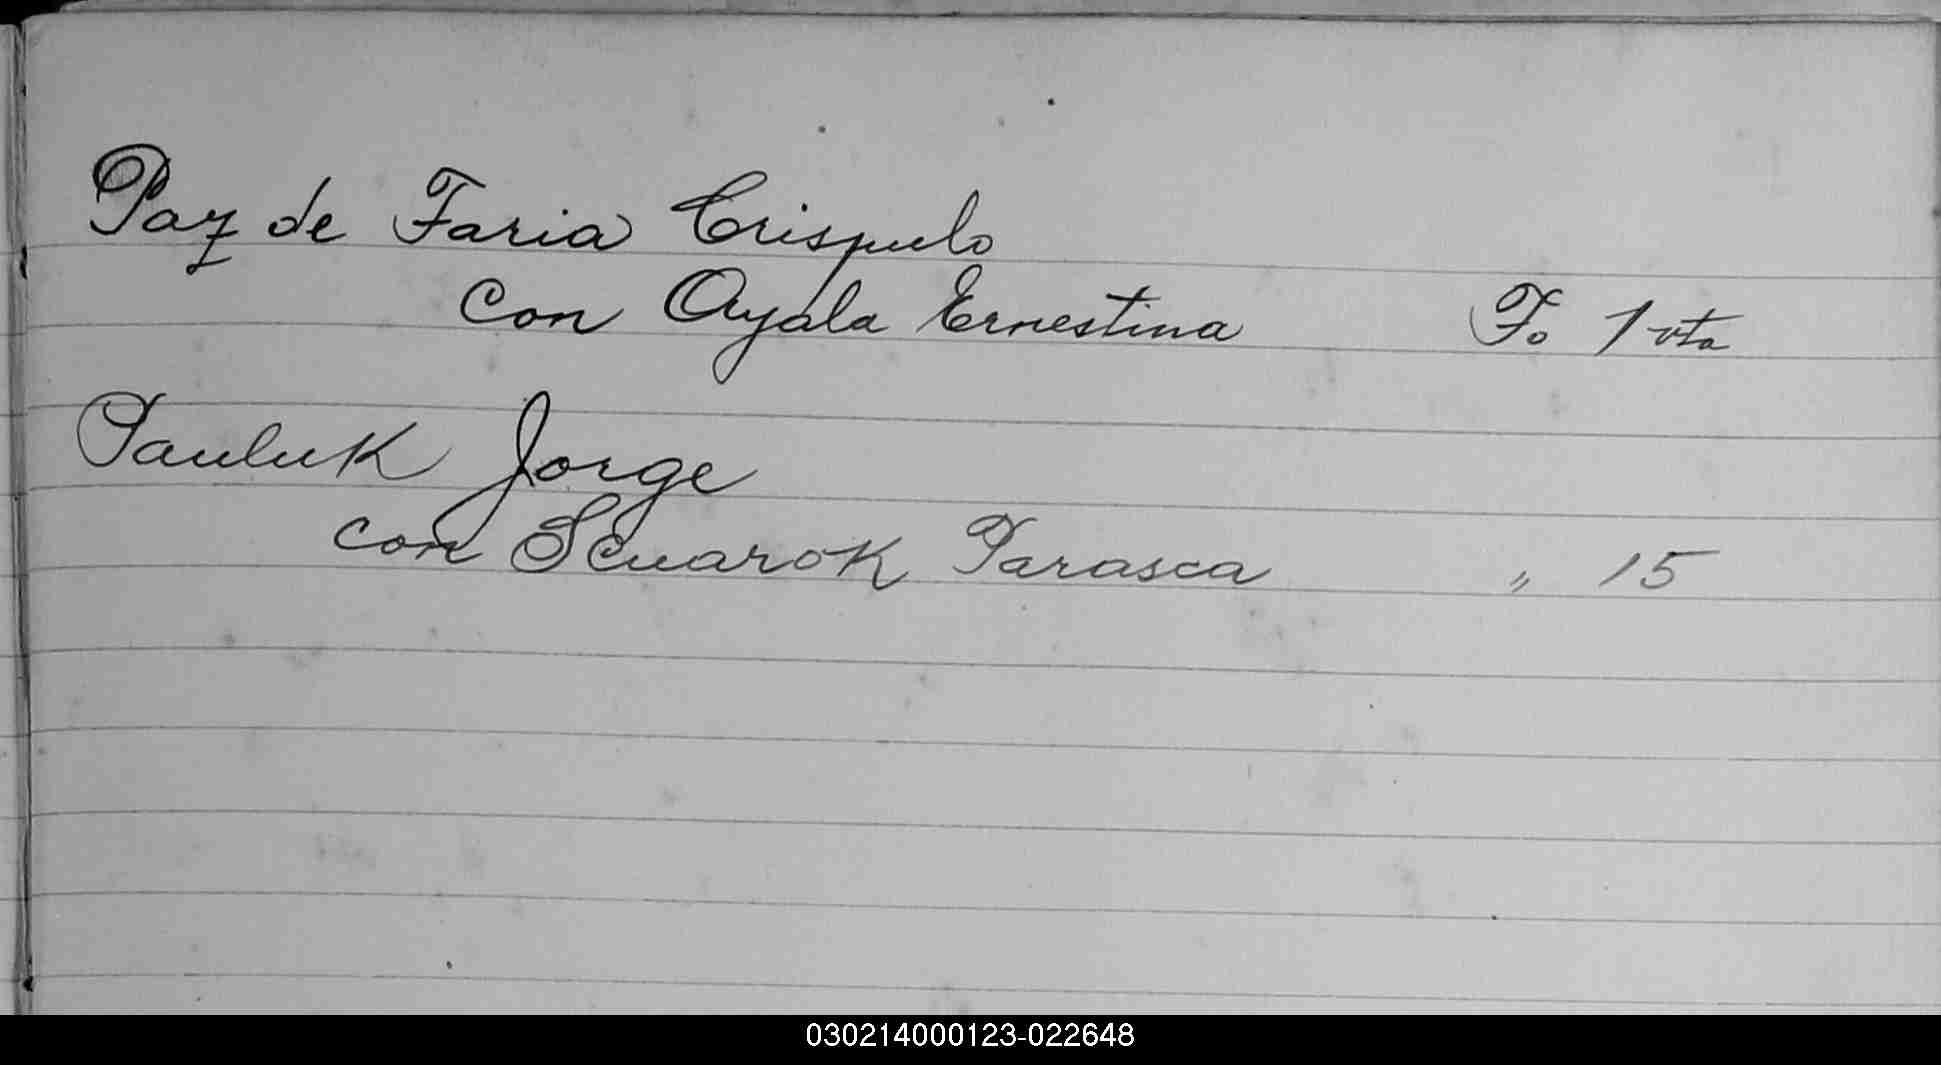 Paz de Faria Crispulo
con Ayala Ernestina Fo 1 vta
Pauluk Jorge
con Scuarok Parasca " 15
030214000123-022648